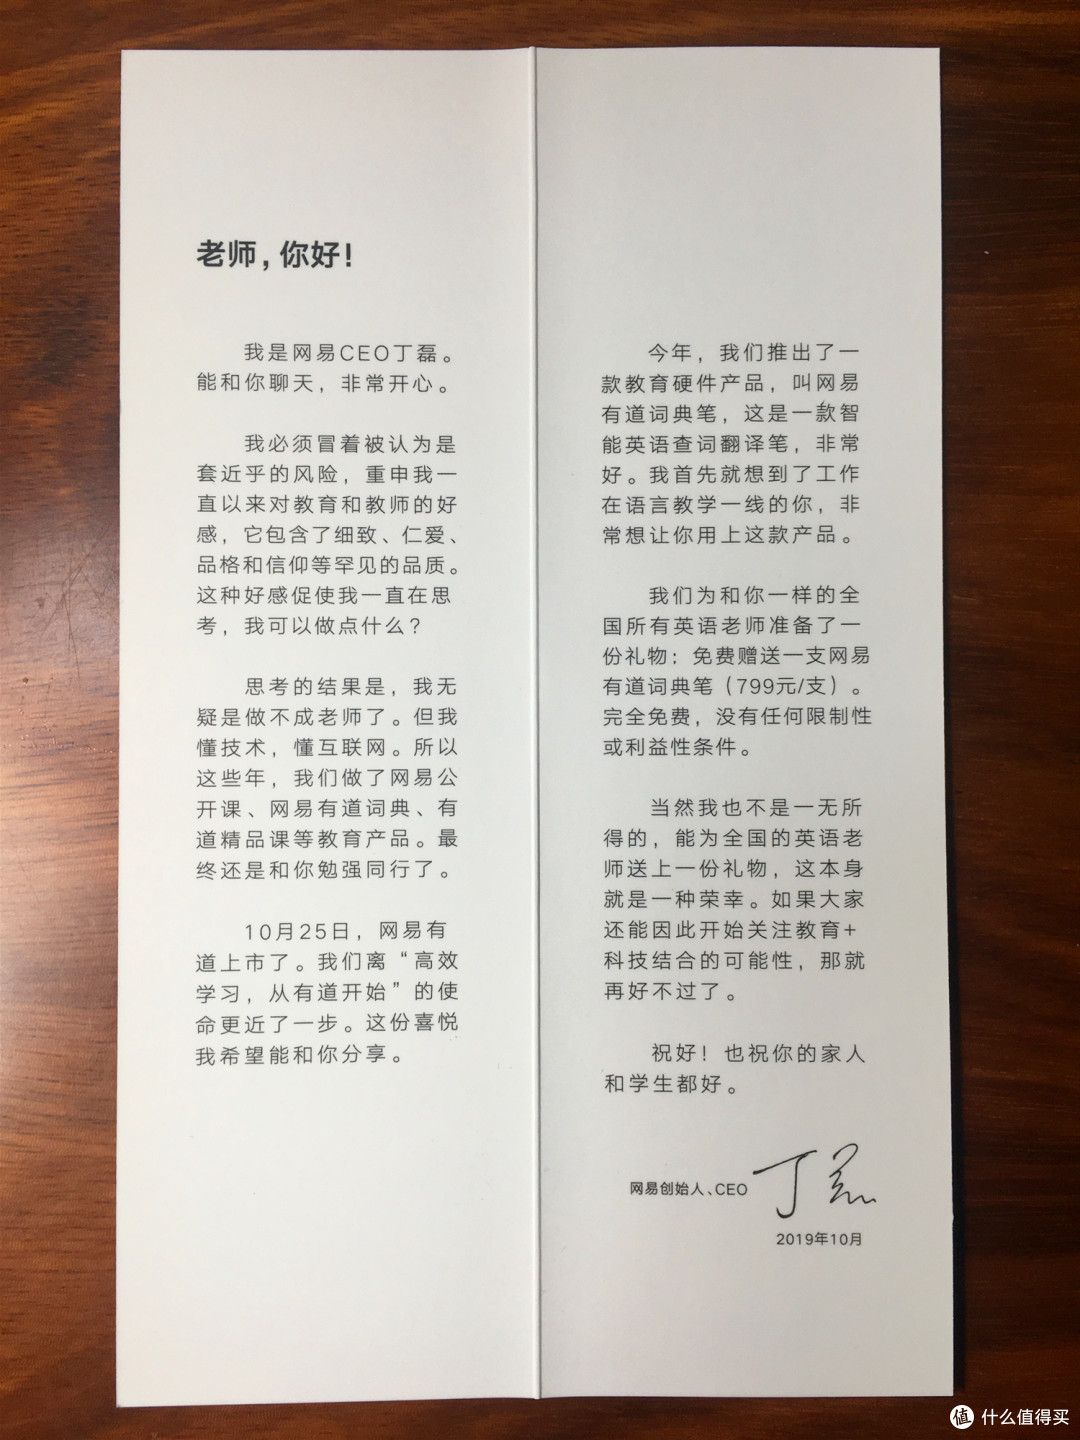 老师，你好！
我是网易CEO丁磊。
能和你聊天，非常开心。
我必须冒着被认为是
套近乎的风险，重申我一
直以来对教育和教师的好
感，它包含了细致、仁爱、
品格和信仰等罕见的品质。
这种好感促使我一直在思
考，我可以做点什么？
思考的结果是，我无
疑是做不成老师了。但我
懂技术，懂互联网。所以
这些年，我们做了网易公
开课、网易有道词典、有
道精品课等教育产品。最
终还是和你勉强同行了。
10月25日，网易有
道上市了。我们离“高效
学习，从有道开始”的使
命更近了一步。这份喜悦
我希望能和你分享。
今年，我们推出了一
款教育硬件产品，叫网易
有道词典笔，这是一款智
能英语查词翻译笔，非常
好。我首先就想到了工作
在语言教学一线的你，非
常想让你用上这款产品。
我们为和你一样的全
国所有英语老师准备了一
份礼物：免费赠送一支网易
有道词典笔（799元/支）。
完全免费，没有任何限制性
或利益性条件。
当然我也不是一无所
得的，能为全国的英语老
师送上一份礼物，这本身
就是一种荣幸。如果大家
还能因此开始关注教育+
科技结合的可能性，那就
再好不过了。
祝好！也祝你的家人
和学生都好。
网易创始人、CEO 丁磊
2019年10月
值 什么值得买